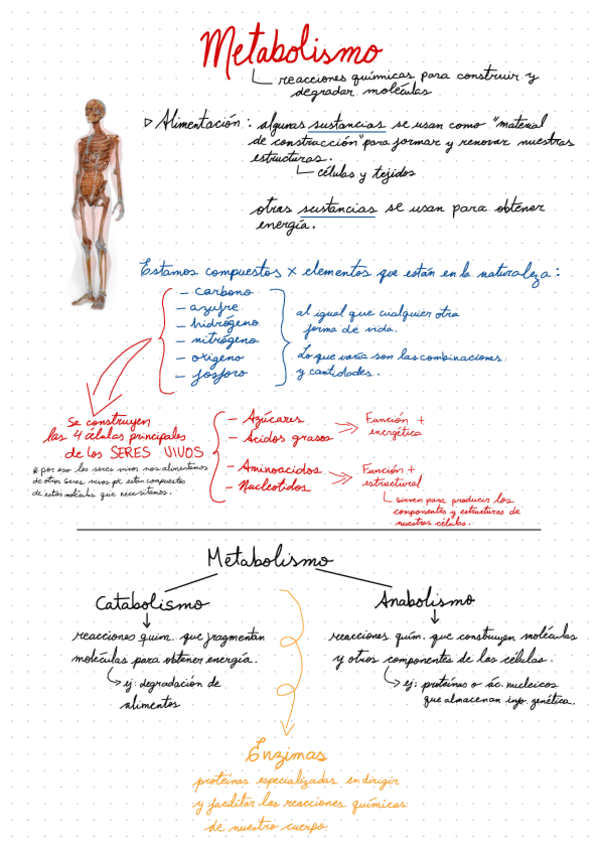 Metabolismo
reacciones químicas para construir y
degradar moléculas
Alimentación: algunas sustancias se usan como "material
de construcción" para formar y renovar nuestras
estructuras.
células y tejidos
otras sustancias se usan para obtener
energía.
Estamos compuestos x elementos que están en la naturaleza:
- carbono
- azufre
- hidrógeno
- nitrógeno
- oxígeno
- fósforo
al igual que cualquier otra
forma de vida.
Lo que varía son las combinaciones
y cantidades.
Se construyen
las 4 células principales
de los SERES VIVOS
* por eso los seres vivos nos alimentamos
de otros seres vivos pq están compuestos
de estas moléculas que necesitamos.
- Azúcares
- Ácidos grasos
Función +
energética
- Aminoacidos
- Nucleotidos
Función +
estructural
sirven para producir los
componentes y estructuras de
nuestras células.
Metabolismo
Catabolismo
reacciones quím. que fragmentan
moléculas para obtener energía.
ej: degradación de
alimentos
Anabolismo
reacciones quím. que construyen moléculas
y otros componentes de las células.
ej: proteínas o ác. nucleicos
que almacenan info. genética.
Enzimas
proteínas especializadas en dirigir
y facilitar las reacciones químicas
de nuestro cuerpo.